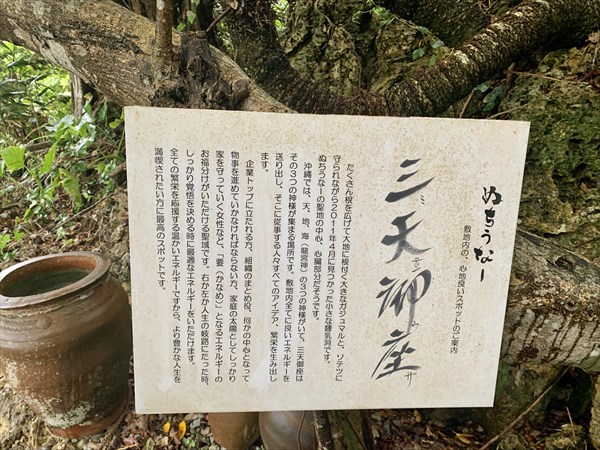 ぬちうなー
敷地内の、心地良いスポットのご案内
三天御座
ミ テン ウ ザ
たくさん根を広げて大地に根付く大きなガジュマルと、ソテツに
守られながら2011年4月に見つかった小さな鍾乳洞です。
ぬちうなーの聖地の中心、心臓部分だそうです。
沖縄では、天、地、海（龍宮神）の3つの神様がいて、三天御座は
その3つの神様が集まる場所です。敷地内全てに良いエネルギーを
送り出し、そこに従事する人々すべてのアイデア、繁栄を生み出し
ます。
企業トップに立たれる方、組織のまとめ役、何かの中心となって
物事を進めていかなければならない方、家庭の太陽としてしっかり
家を守っていく女性など、「要（かなめ）」となるエネルギーの
お福分けがいただける聖域です。右か左か人生の岐路にたった時、
しっかり覚悟を決める時に最適なエネルギーをいただけます。
全ての繁栄を応援する温かいエネルギーですから、より豊かな人生を
満喫されたい方に最高のスポットです。